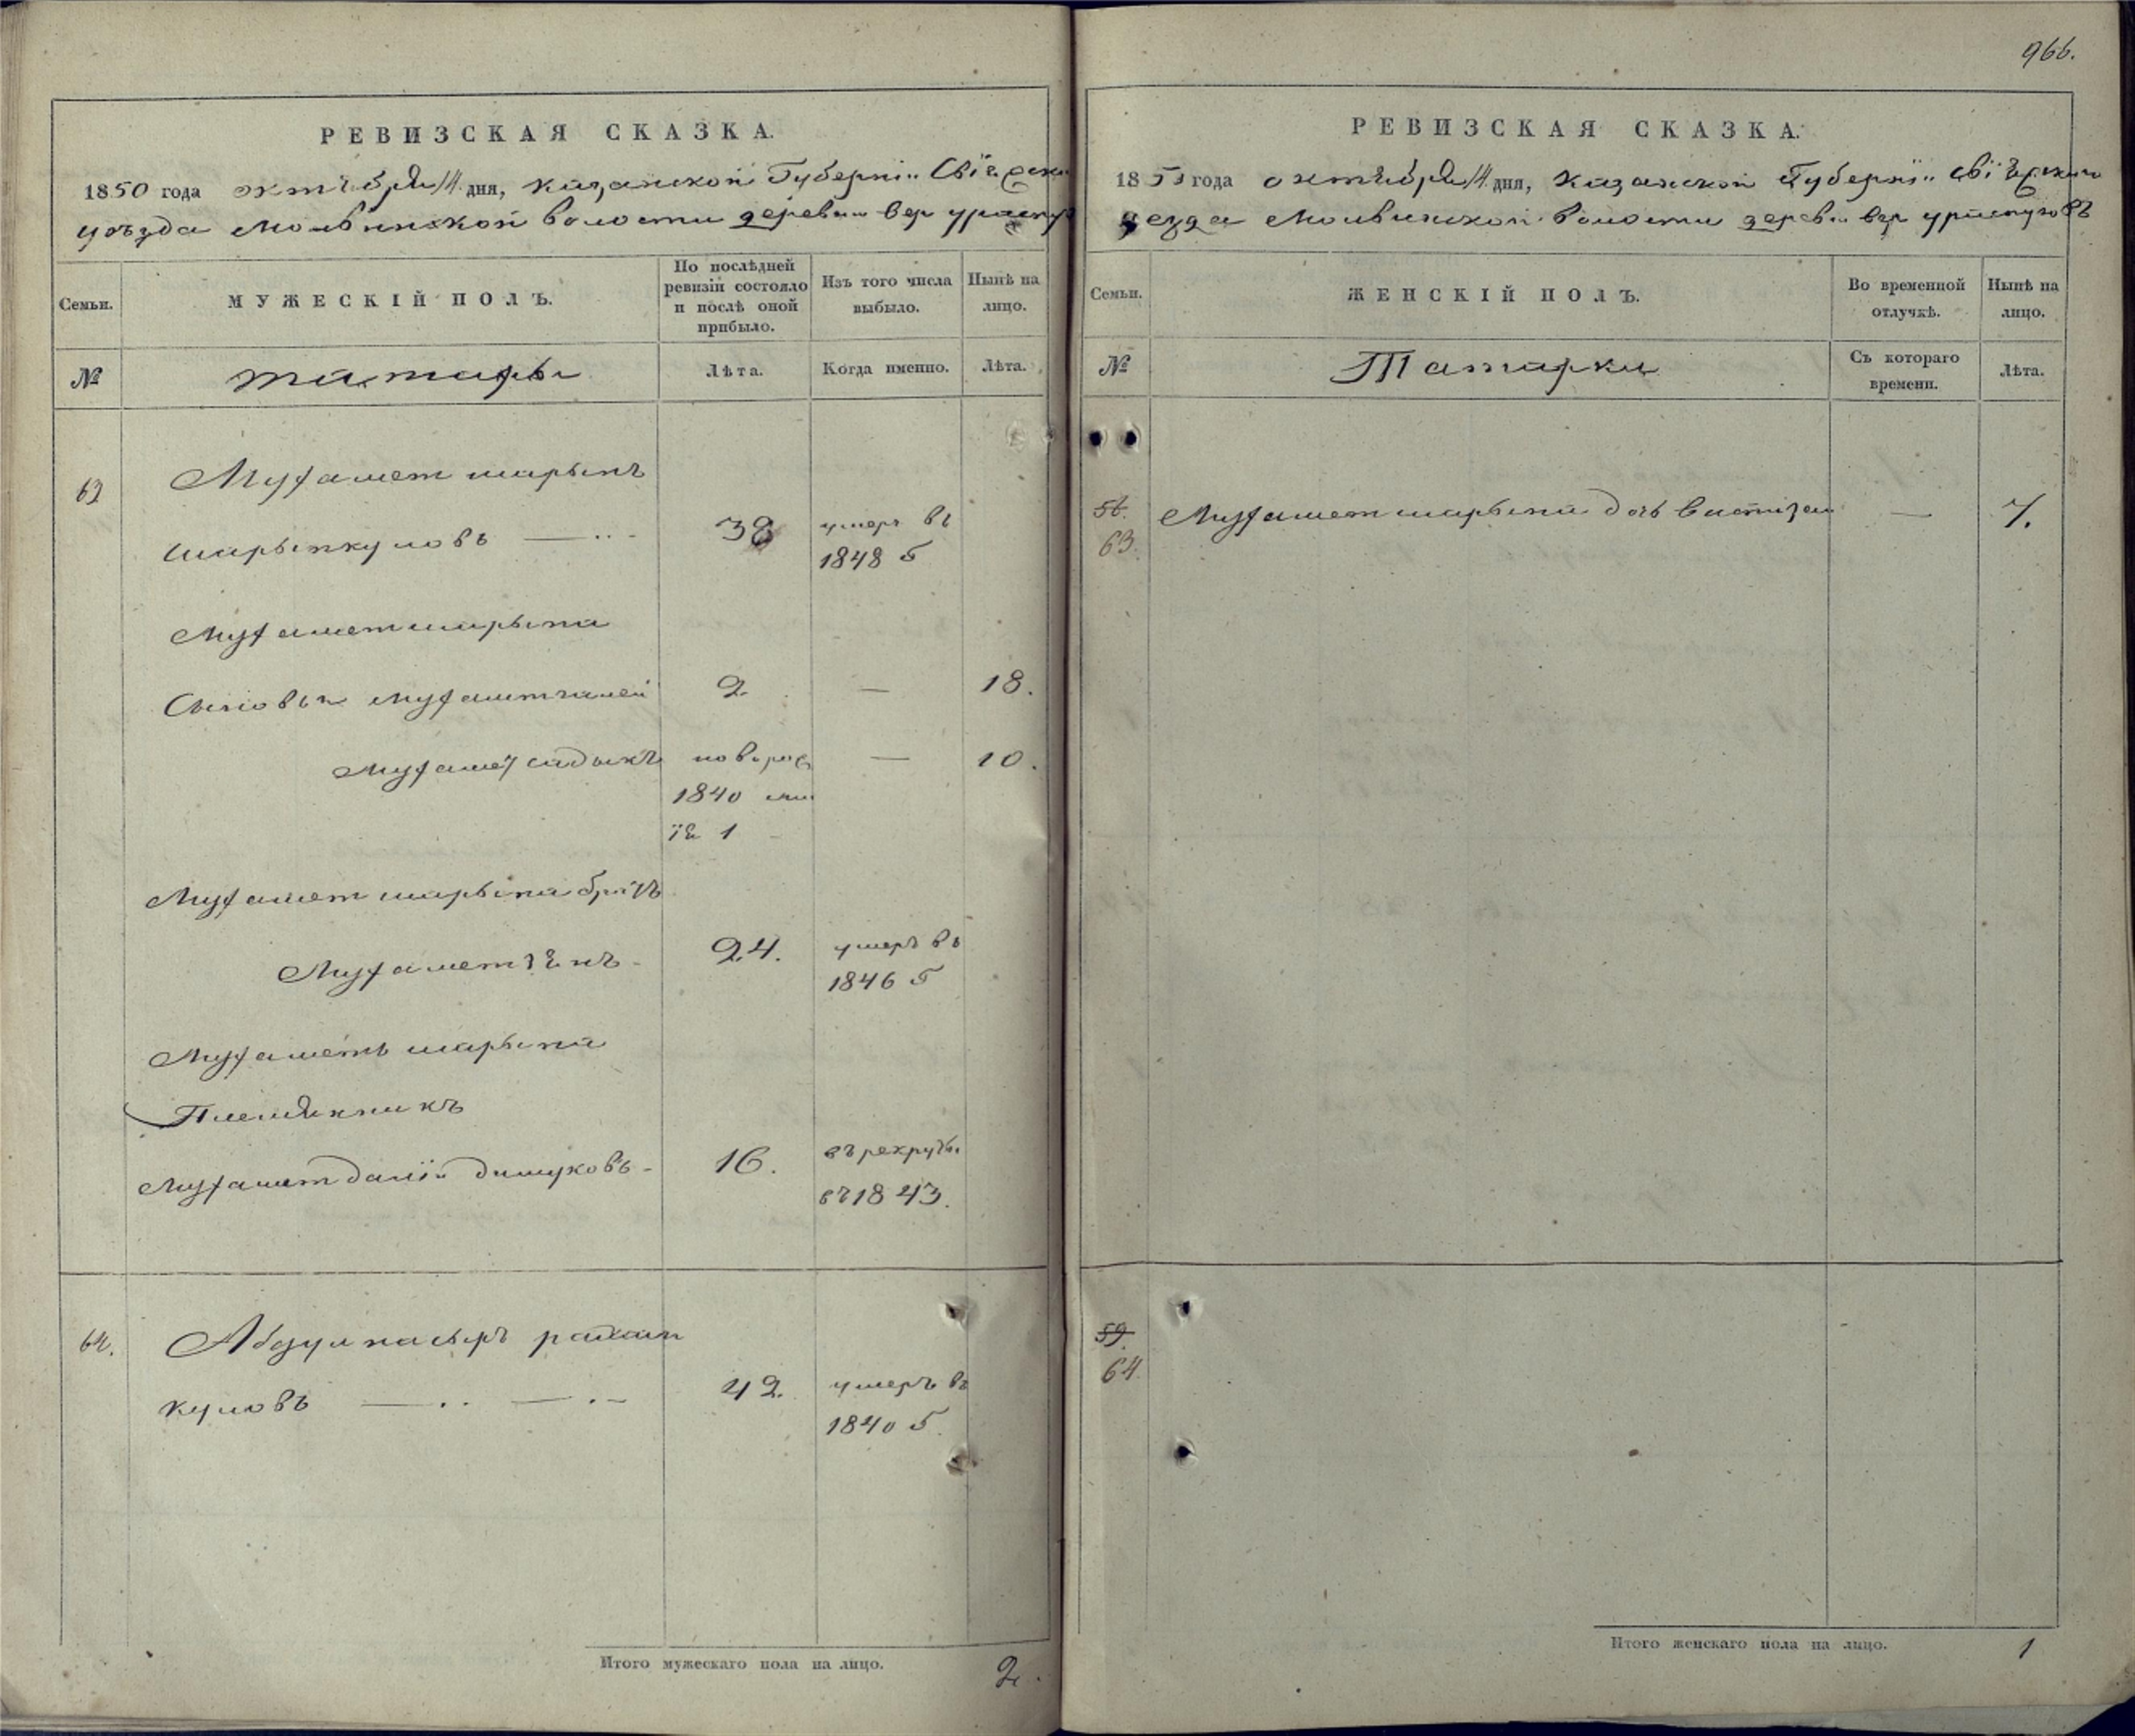 966.
РЕВИЗСКАЯ СКАЗКА.
1850 года октября 14 дня, Казанской Губернiи Свiяжск
уѣзда Молвинской волости деревни Вер ураспуг
Семьи.
МУЖЕСКIЙ ПОЛЪ.
По послѣдней ревизiи состояло и послѣ оной прибыло.
Изъ того числа выбыло.
Нынѣ на лицо.
№
татары
Лѣта.
Когда именно.
Лѣта.
63
Мухамет шарыпъ
шарыпкуловъ
38
умеръ въ
1848 г
Мухаметшарыпа
Сыновья Мухаметгалей
2
—
18.
Мухаметсадыкъ
новорож
—
10.
1840
1
Мухамет шарыпа братъ
Мухамет
24.
умеръ въ
1846 г
Мухаметъ шарыпа
Племянникъ
Мухамет
16.
въ рекруты
въ 1843.
64.
Абдулнасыръ
куловъ
42.
умеръ въ
1840 г.
Итого мужескаго пола на лицо.
2.
РЕВИЗСКАЯ СКАЗКА.
1850 года октября 14 дня, Казанской Губернiи Свiяжскаго
уезда Молвинской волости дерев. вер
Семьи.
ЖЕНСКIЙ ПОЛЪ.
Во временной отлучкѣ.
Нынѣ на лицо.
№
Татарки
Съ котораго времени.
Лѣта.
63.
Мухаметшарыпа дочь
—
7.
59.
64
Итого женскаго пола на лицо.
1